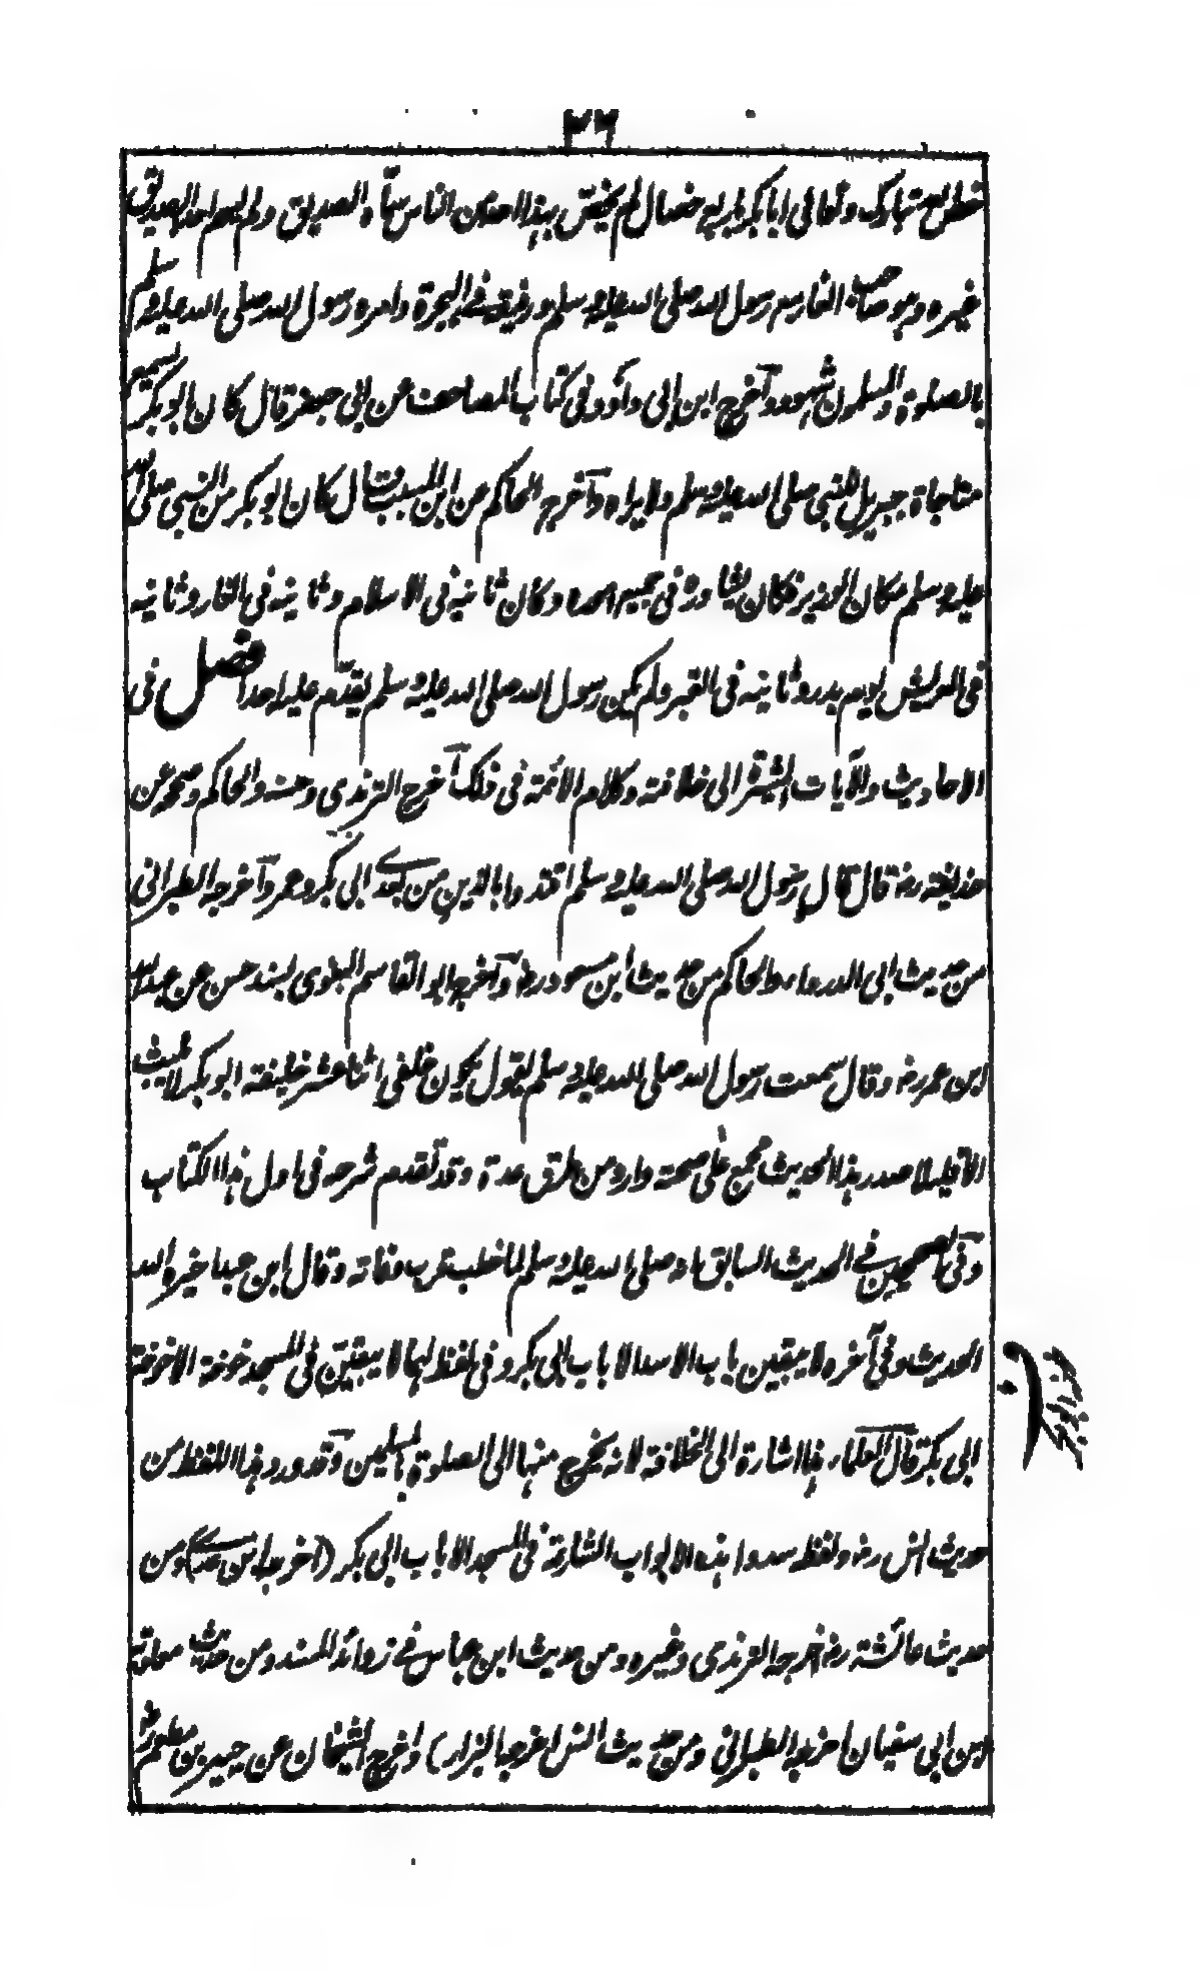 ٣٦
خص الله تبارك وتعالى ابا بكر باربع خصال لم يختص بهذا احد من الناس سماه الصديق ولم يسم احد الصديق
غيره وهو صاحب الغار مع رسول الله صلى الله عليه وسلم ورفيقه فى الهجرة وامره رسول الله صلى الله عليه وسلم
بالصلوة والمسلمون شهود وآخرج ابن ابى داؤد فى كتاب المصاحف عن ابى جعفر قال كان ابو بكر يسمع
مناجاة جبريل للنبى صلى الله عليه وسلم ولا يراه وآخرج الحاكم عن ابن المسيب قال كان ابو بكر من النبى صلى الله
عليه وسلم مكان الوزير فكان يشاوره فى جميع اموره وكان ثانيه فى الاسلام وثانيه فى الغار وثانيه
فى العريش يوم بدر وثانيه فى القبر ولم يكن رسول الله صلى الله عليه وسلم يقدم عليه احدا فصل فى
الاحاديث والآيات المشيرة الى خلافته وكلام الائمة فى ذلك آخرج الترمذى وحسنه والحاكم وصححه عن
حذيفة رض قال قال رسول الله صلى الله عليه وسلم اقتدوا بالذين من بعدى ابى بكر وعمر وآخرجه الطبرانى
من حديث ابى الدرداء والحاكم من حديث ابن مسعود رض وآخرج ابو القاسم البغوى بسند حسن عن عبد الله
ابن عمر رض وقال سمعت رسول الله صلى الله عليه وسلم يقول يكون خلفى اثنا عشر خليفة ابو بكر لا يلبث
الا قليلا صدر هذا الحديث مجمع على صحته وارد من طرق عدة وقد تقدم شرحه فى اول هذا الكتاب
وفى الصحيحين فى الحديث السابق انه صلى الله عليه وسلم لما خطب قرب وفاته وقال ان عبدا خيره الله
الحديث وفى آخره لا يبقين باب الا سد الا باب ابى بكر وفى لفظ لهما لا يبقين فى المسجد خوخة الا خوخة
ابى بكر قال العلماء هذا اشارة الى الخلافة لانه يخرج منها الى الصلوة بالمسلمين وقد ورد هذا اللفظ من
حديث انس رض ولفظه سدوا هذه الابواب الشارعة فى المسجد الا باب ابى بكر (اخرجه ابن عدى) ومن
حديث عائشة رض اخرجه الترمذى وغيره ومن حديث ابن عباس فى زوائد المسند ومن حديث معاوية
بن ابى سفيان اخرجه الطبرانى ومن حديث انس اخرجه البزار) واخرج الشيخان عن جبير بن مطعم رض